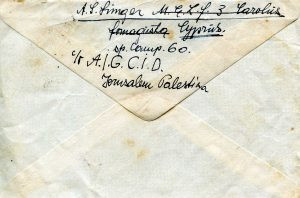 A. S. Singer M.E.L.F. 3 Carolus
Famagusta Cyprus.
sp. Camp. 60.
c/o A./G. C.I.D.
Jerusalem Palestina